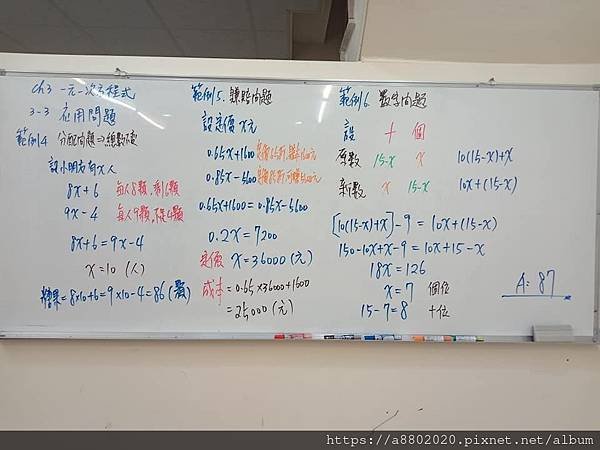 ch3 一元一次方程式
3-3 應用問題
範例4 分配問題⇒總數不變
設小朋友有x人
8x+6 每人8顆,剩6顆
9x-4 每人9顆,不足4顆
8x+6=9x-4
x=10 (人)
糖果=8×10+6=9×10-4=86(顆)
範例5. 賺賠問題
設定價x元
0.65x+1600
0.85x-5600
0.65x+1600=0.85x-5600
0.2x=7200
定價 x=36000(元)
成本=0.65×36000+1600
=25000(元)
範例6 數字問題
設 十 個
原數 15-x x 10(15-x)+x
新數 x 15-x 10x+(15-x)
[10(15-x)+x]-9=10x+(15-x)
150-10x+x-9=10x+15-x
18x=126
x=7 個位
15-7=8 十位
A: 87
https://a8802020.pixnet.net/album